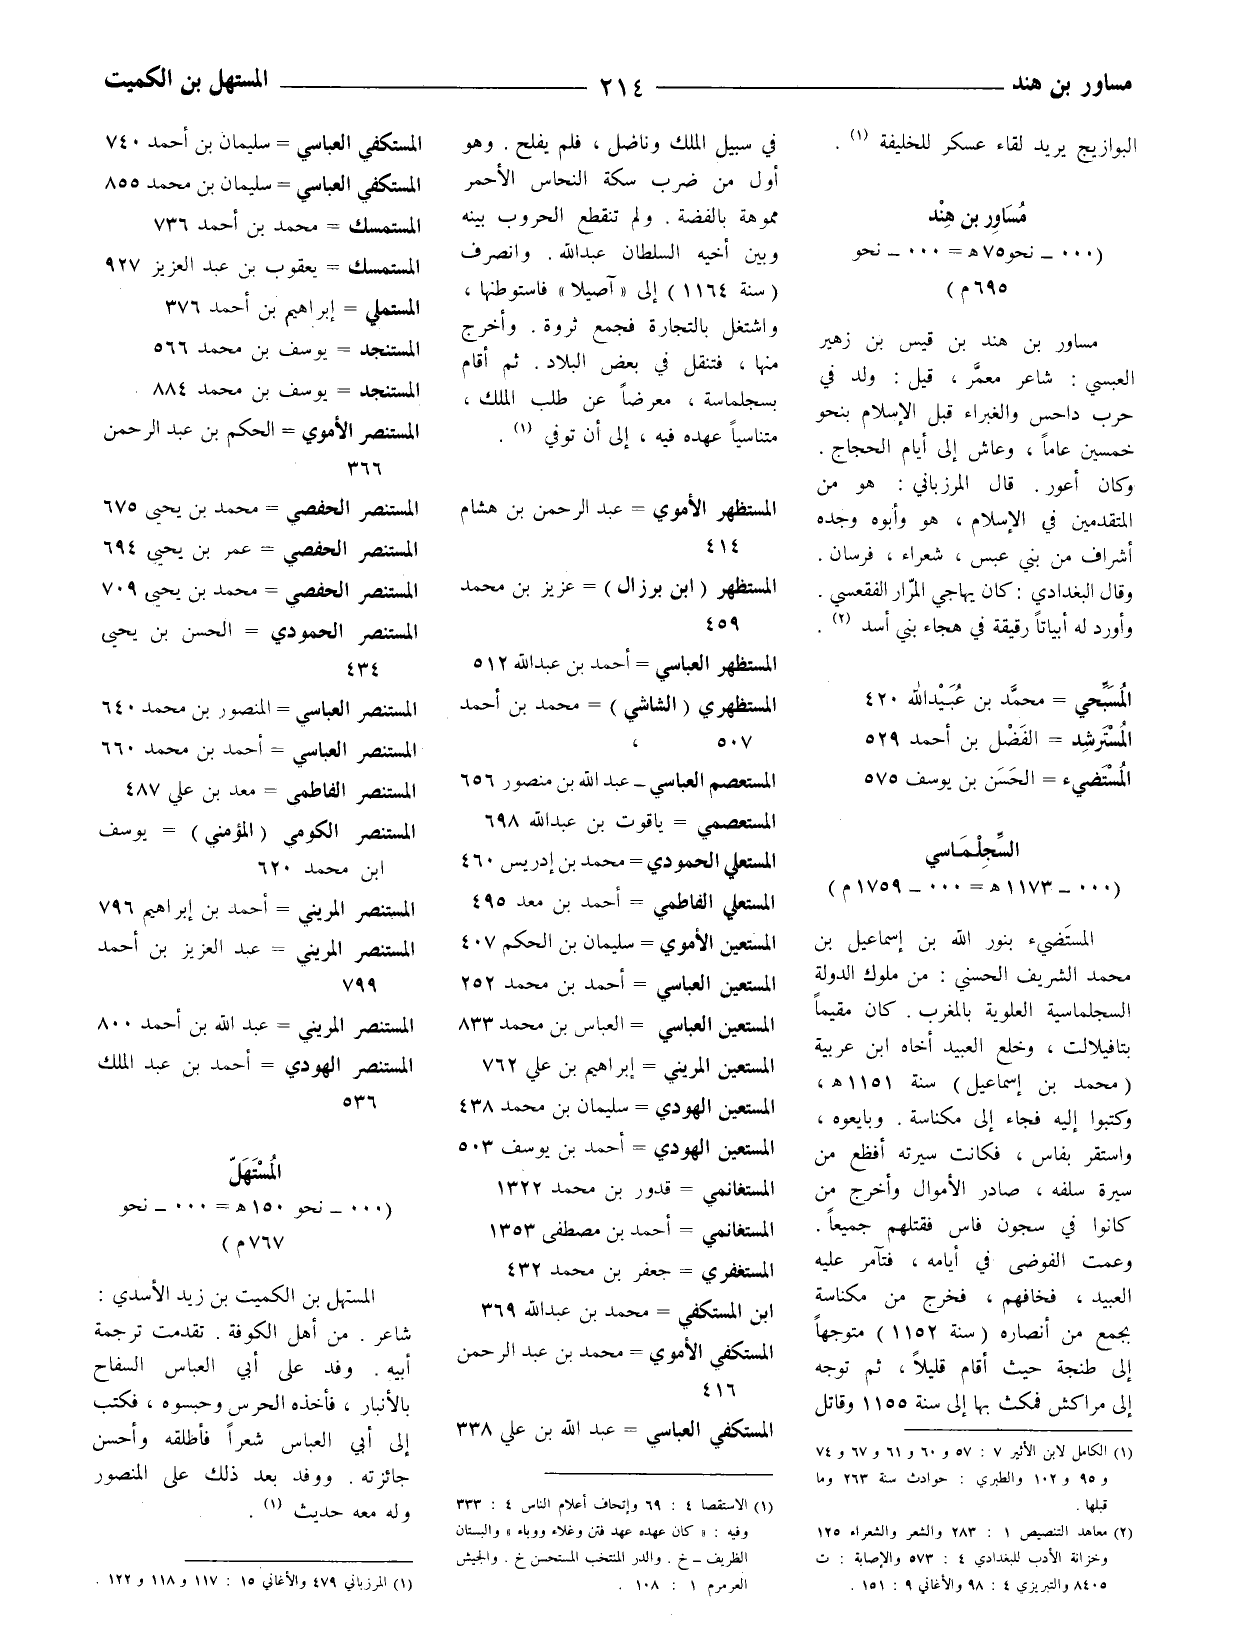 مساور بن هند ٢١٤ المستهل بن الكميت
البوازيج يريد لقاء عسكر للخليفة (١) .
مُسَاوِر بن هِنْد
(٠٠٠ ــ نحو٧٥ه = ٠٠٠ ــ نحو
٦٩٥م)
مساور بن هند بن قيس بن زهير
العبسي : شاعر معمَّر ، قيل : ولد في
حرب داحس والغبراء قبل الإسلام بنحو
خمسين عاماً ، وعاش إلى أيام الحجاج .
وكان أعور . قال المرزباني : هو من
المتقدمين في الإسلام ، هو وأبوه وجده
أشراف من بني عبس ، شعراء ، فرسان .
وقال البغدادي : كان يهاجي المرّار الفقعسي .
وأورد له أبياتاً رقيقة في هجاء بني أسد (٢) .
المُسَبِّحي = محمَّد بن عُبَيْدالله ٤٢٠
المُسْتَرشِد = الفَضْل بن أحمد ٥٢٩
المُسْتَضيء = الحَسَن بن يوسف ٥٧٥
السِّجِلْمَاسي
(٠٠٠ ــ ١١٧٣ه = ٠٠٠ ــ ١٧٥٩م)
المستَضيء بنور الله بن إسماعيل بن
محمد الشريف الحسني : من ملوك الدولة
السجلماسية العلوية بالمغرب . كان مقيماً
بتافيلالت ، وخلع العبيد أخاه ابن عربية
(محمد بن إسماعيل) سنة ١١٥١ه ،
وكتبوا إليه فجاء إلى مكناسة . وبايعوه ،
واستقر بفاس ، فكانت سيرته أفظع من
سيرة سلفه ، صادر الأموال وأخرج من
كانوا في سجون فاس فقتلهم جميعاً .
وعمت الفوضى في أيامه ، فتآمر عليه
العبيد ، فخافهم ، فخرج من مكناسة
بجمع من أنصاره (سنة ١١٥٢) متوجهاً
إلى طنجة حيث أقام قليلاً ، ثم توجه
إلى مراكش فمكث بها إلى سنة ١١٥٥ وقاتل
(١) الكامل لابن الأثير ٧ : ٥٧ و ٦٠ و ٦١ و ٦٧ و ٧٤
و ٩٥ و ١٠٢ والطبري : حوادث سنة ٢٦٣ وما
قبلها .
(٢) معاهد التنصيص ١ : ٢٨٣ والشعر والشعراء ١٢٥
وخزانة الأدب للبغدادي ٤ : ٥٧٣ والإصابة : ت
٨٤٠٥ والتبريزي ٤ : ٩٨ والأغاني ٩ : ١٥١ .
في سبيل الملك وناضل ، فلم يفلح . وهو
أول من ضرب سكة النحاس الأحمر
مموهة بالفضة . ولم تنقطع الحروب بينه
وبين أخيه السلطان عبدالله . وانصرف
(سنة ١١٦٤) إلى «آصيلا» فاستوطنها ،
واشتغل بالتجارة فجمع ثروة . وأخرج
منها ، فتنقل في بعض البلاد . ثم أقام
بسجلماسة ، معرضاً عن طلب الملك ،
متناسياً عهده فيه ، إلى أن توفي (١) .
المستظهر الأموي = عبد الرحمن بن هشام
٤١٤
المستظهر (ابن برزال) = عزيز بن محمد
٤٥٩
المستظهر العباسي = أحمد بن عبدالله ٥١٢
المستظهري (الشاشي) = محمد بن أحمد
٥٠٧ ،
المستعصم العباسي ــ عبد الله بن منصور ٦٥٦
المستعصمي = ياقوت بن عبدالله ٦٩٨
المستعلي الحمودي = محمد بن إدريس ٤٦٠
المستعلي الفاطمي = أحمد بن معد ٤٩٥
المستعين الأموي = سليمان بن الحكم ٤٠٧
المستعين العباسي = أحمد بن محمد ٢٥٢
المستعين العباسي = العباس بن محمد ٨٣٣
المستعين المريني = إبراهيم بن علي ٧٦٢
المستعين الهودي = سليمان بن محمد ٤٣٨
المستعين الهودي = أحمد بن يوسف ٥٠٣
المستغانمي = قدور بن محمد ١٣٢٢
المستغانمي = أحمد بن مصطفى ١٣٥٣
المستغفري = جعفر بن محمد ٤٣٢
ابن المستكفي = محمد بن عبدالله ٣٦٩
المستكفي الأموي = محمد بن عبد الرحمن
٤١٦
المستكفي العباسي = عبد الله بن علي ٣٣٨
(١) الاستقصا ٤ : ٦٩ وإتحاف أعلام الناس ٤ : ٣٣٣
وفيه : « كان عهده عهد فتن وغلاء ووباء » والبستان
الظريف ــ خ . والدر المنتخب المستحسن خ . والجيش
العرمرم ١ : ١٠٨ .
المستكفي العباسي = سليمان بن أحمد ٧٤٠
المستكفي العباسي = سليمان بن محمد ٨٥٥
المستمسك = محمد بن أحمد ٧٣٦
المستمسك = يعقوب بن عبد العزيز ٩٢٧
المستملي = إبراهيم بن أحمد ٣٧٦
المستنجد = يوسف بن محمد ٥٦٦
المستنجد = يوسف بن محمد ٨٨٤
المستنصر الأموي = الحكم بن عبد الرحمن
٣٦٦
المستنصر الحفصي = محمد بن يحيى ٦٧٥
المستنصر الحفصي = عمر بن يحيى ٦٩٤
المستنصر الحفصي = محمد بن يحيى ٧٠٩
المستنصر الحمودي = الحسن بن يحيى
٤٣٤
المستنصر العباسي = المنصور بن محمد ٦٤٠
المستنصر العباسي = أحمد بن محمد ٦٦٠
المستنصر الفاطمي = معد بن علي ٤٨٧
المستنصر الكومي (المؤمني) = يوسف
ابن محمد ٦٢٠
المستنصر المريني = أحمد بن إبراهيم ٧٩٦
المستنصر المريني = عبد العزيز بن أحمد
٧٩٩
المستنصر المريني = عبد الله بن أحمد ٨٠٠
المستنصر الهودي = أحمد بن عبد الملك
٥٣٦
المُسْتَهَلّ
(٠٠٠ ــ نحو ١٥٠ه = ٠٠٠ ــ نحو
٧٦٧م)
المستهل بن الكميت بن زيد الأسدي :
شاعر . من أهل الكوفة . تقدمت ترجمة
أبيه . وفد على أبي العباس السفاح
بالأنبار ، فأخذه الحرس وحبسوه ، فكتب
إلى أبي العباس شعراً فأطلقه وأحسن
جائزته . ووفد بعد ذلك على المنصور
وله معه حديث (١) .
(١) المرزباني ٤٧٩ والأغاني ١٥ : ١١٧ و ١١٨ و ١٢٢ .